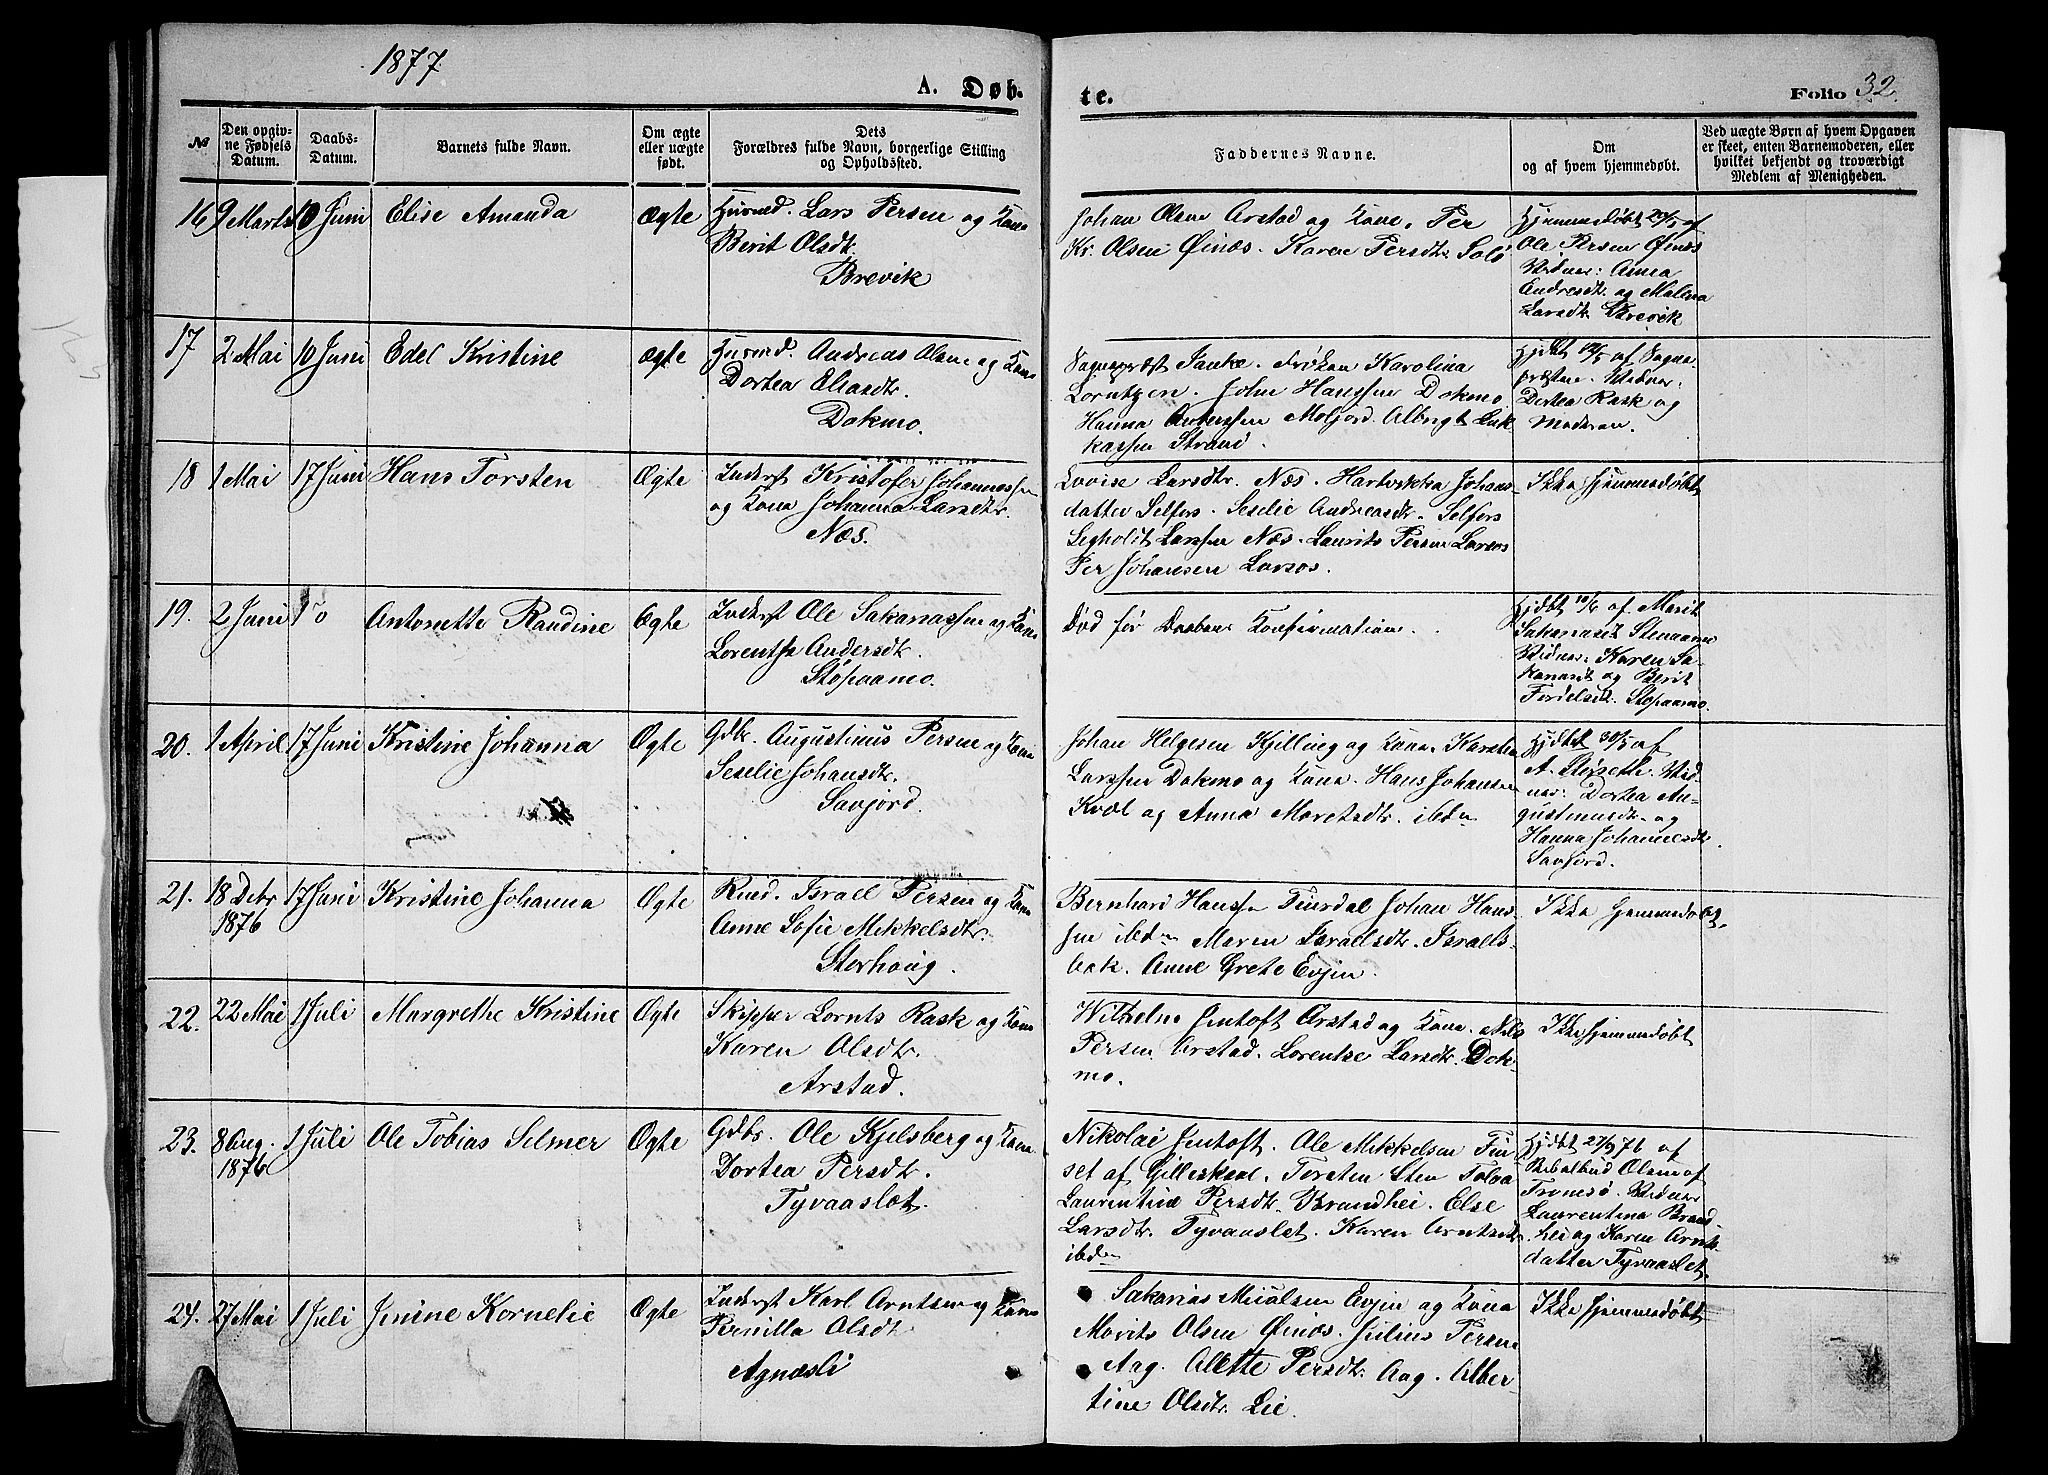 1877.
A. Døb-
te.
Folio 32.
№
Den opgiv-
ne Fødsels
Datum.
Daabs-
Datum.
Barnets fulde Navn.
Om ægte
eller uægte
født.
Dets
Forældres fulde Navn, borgerlige Stilling
og Opholdssted.
Faddernes Navne.
Om
og af hvem hjemmedøbt.
Ved uægte Børn af hvem Opgaven
er skeet, enten Barnemoderen, eller
hvilket bekjendt og troværdigt
Medlem af Menigheden.
16 9 Marts 10 Juni Elise Amanda Ægte Husmd. Lars Persen og Kone
Berit Olsdtr.
Brevik
Johan Olsen Arstad og Kone. Per
Kr. Olsen Øinæs. Karen Persdtr. Solø
Hjemmedøbt 20/5 af
Ole Persen Øinæs
Vidner: Anna
Andresdtr. og Malena
Larsdtr. Brevik
17 2 Mai 10 Juni Edel Kristine Ægte Husmd. Andreas Olsen og Kone
Dortea Eliasdtr.
Dokmo.
Sognepræst Janke. Frøken Karolina
Lorntzen. John Hanssen Dokmo
Hanna Anderssen Moljord. Albrigt Luk-
kassen Strand.
Hjdbt 12/5 af Sogne
præsten. Vidner.
Dortea Rask og
Moderen.
18 1 Mai 17 Juni Hans Torsten Ægte Inderst Kristofer Johannessen
og Kone Johanna Larsdtr.
Næs.
Lovise Larsdtr. Næs. Hartvikka Johans-
datter Selfors. Seselie Andreasdtr. Selfors
Segholdt Larssen Næs. Laurits Persen Larsos
Per Johansen Larsos.
Ikke hjemmedøbt
19. 2 Juni Antonette Randine Ægte Inderst Ole Sakariassen og Kone
Lorentse Andersdtr.
Støpaamo.
Død før Daabens Konfirmation.
Hjdbt 10/6 af Marit
Sakariasdt Stenaamo
Vidner. Karen Sa-
kariasdt og Berit
Fordelsdt. Støpaamo.
20. 1 April 17 Juni Kristine Johanna Ægte Gdbr. Augustinus Persen og Kone
Seselie Johansdtr.
Savjord.
Johan Helgesen Kjelling og Kone. Karsten
Larssen Dokmo og Kone. Hans Johansen
Kvæl og Anna Moretsdtr. ibdm
Hjdbt 30/5 af
A. Støpseth. Vid-
ner: Dortea Au-
gustinusdtr. og
Hanna Johannesdtr.
Savjord.
21. 18 Debr 17 Juni Kristine Johanna Ægte Rmd. Israel Persen og Kone
1876
Anne Sofie Mikkelsdtr.
Storhaug.
Bernhard Hanssen Tuvdal Johan Hans-
sen ibdm Maren Israelsdtr. Israels-
bak. Anne Grete Evjen.
Ikke hjemmedøbt.
22. 22 Mai 1 Juli Margrethe Kristine Ægte Skipper Lornts Rask og Kone
Karen Olsdtr.
Arstad.
Wilhelm Jentoft Arstad og Kone. Nils
Persen Arstad. Lorentse Larsdtr. Dok-
mo.
Ikke hjemmedøbt
23. 8 Aug. 1 Juli Ole Tobias Selmer Ægte Gdbr. Ole Kjelsberg og Kone
1876
Dortea Persdtr.
Tyvaaslet.
Nikolai Jentoft. Ole Mikkelsen Fin-
set af Gilleskaal. Torsten Sten Tolaa
Laurentine Persdtr. Brandhei. Else
Larsdtr. Tyvaaslet. Karen Arntsdtr.
ibdm
Hjdbt 27/9 76 af
Bibelbud Olsen af
Tromsø. Vidner
Laurentina Brand-
hei og Karen Arnts-
datter Tyvaaslet.
24. 27 Mai 1 Juli Jenine Kornelie Ægte Inderst Karl Arntsen og Kone
Pernilla Olsdtr.
Agnæsli
Sakarias Mikalsen Evjen og Kone
Morits Olsen Øinæs. Julius Persen
Aag. Olette Persdtr. Aag. Alber-
tine Olsdtr. Lie.
Ikke hjemmedøbt